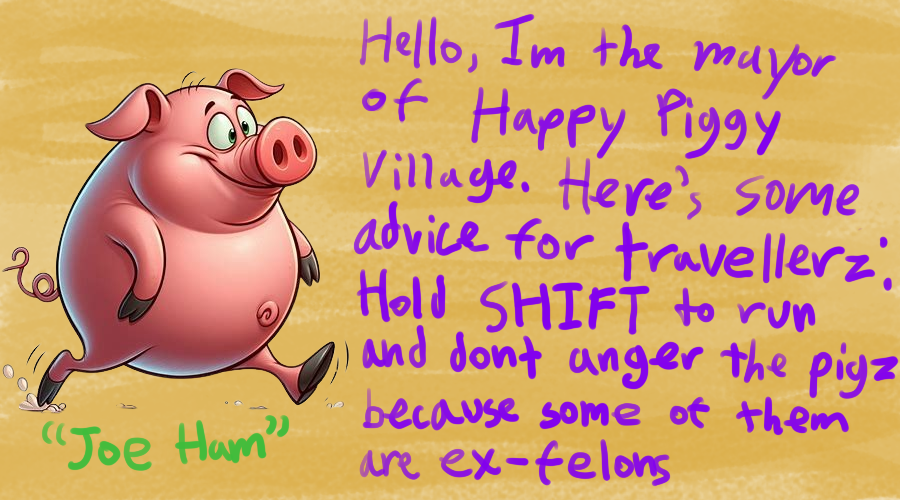 Hello, Im the mayor
of Happy Piggy
Village. Here's some
advice for travellerz:
Hold SHIFT to run
and dont anger the pigz
because some of them
are ex-felons
"Joe Ham"